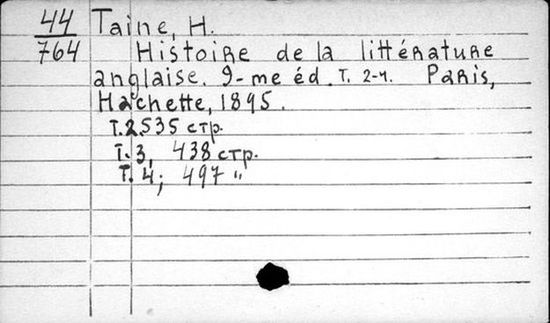 44
764
Taine, H.
Histoire de la littérature
anglaise. 9-me éd. T. 2-4. Paris,
Hachette, 1895.
T.2.535 стр.
T. 3, 438 стр.
T. 4; 497 "